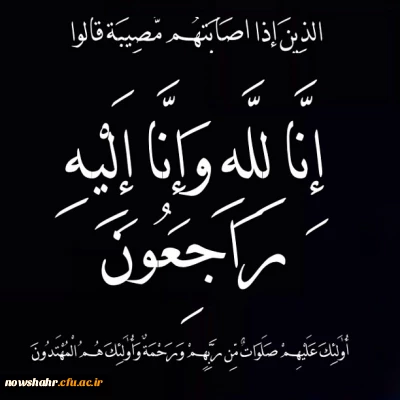 الذِينَ إذَا اصَابَتهُم مّصِيبَة قالوا
إِنَّا لِلَّهِ وَإِنَّا إِلَيْهِ
رَاجَعُونَ
أُولَئِكَ عَلَيهِمْ صَلَوَاتٌ مِّن رَبِّهِمْ وَرَحْمَةٌ وَأُولَئِكَ هُمُ الْمُهْتَدُونَ
nowshahr.cfu.ac.ir